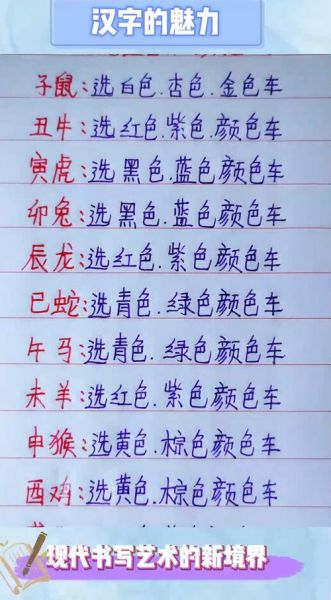 汉字的魅力
子鼠:选白色.杏色.金色车
丑牛:选红色.紫色.颜色车
寅虎:选黑色.蓝色颜色车
卯兔:选黑色.蓝色颜色车
辰龙:选红色.紫色颜色车
巳蛇:选青色.绿色颜色车
午马:选青色.绿色颜色车
未羊:选红色.紫色颜色车
申猴:选黄色.棕色颜色车
酉鸡:选黄色.棕色颜色车
现代书写艺术的新境界